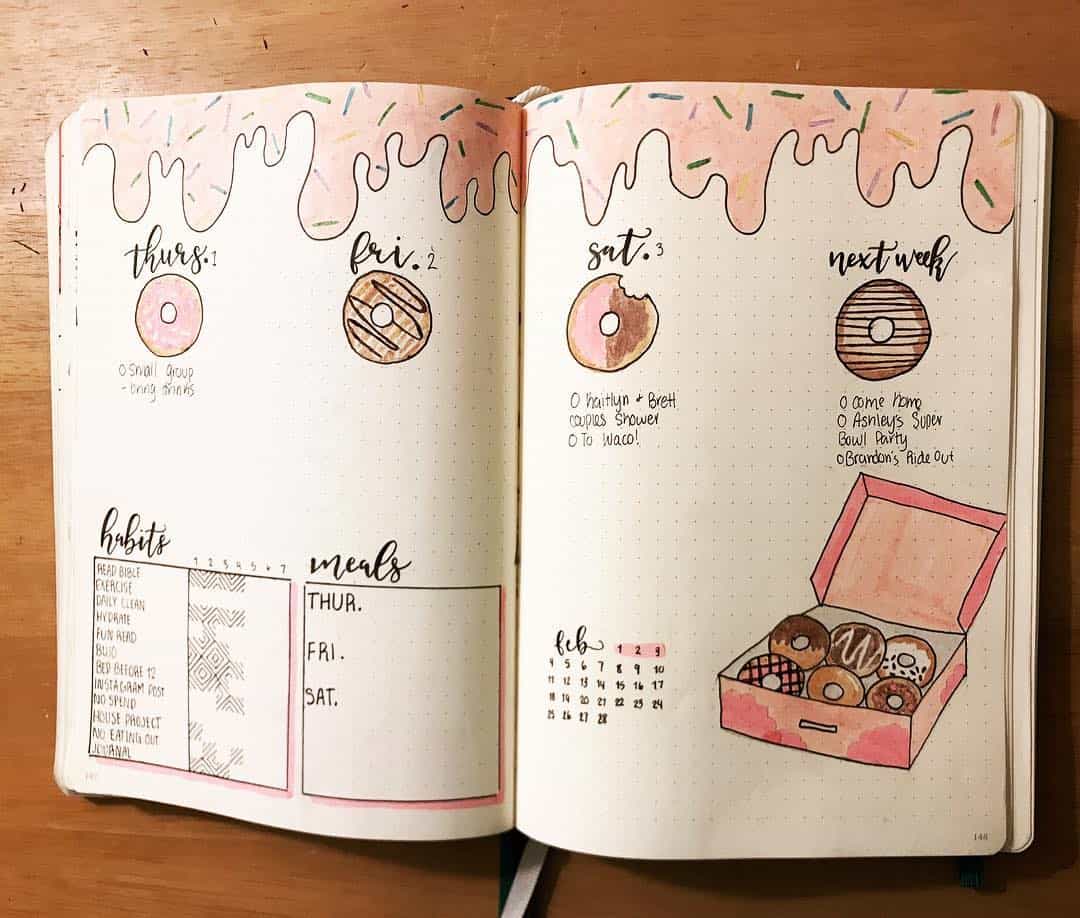 thurs. 1
O Small group
- bring drinks
fri. 2
habits
1 2 3 4 5 6 7
READ BIBLE
EXERCISE
DAILY CLEAN
HYDRATE
FUN READ
BUJO
BED BEFORE 12
INSTAGRAM POST
NO SPEND
HOUSE PROJECT
NO EATING OUT
JOURNAL
meals
THUR.
FRI.
SAT.
sat. 3
O Kaitlyn + Brett
couples Shower
O To Waco!
next week
O come home
O Ashley's Super
Bowl Party
O Brandon's Ride Out
feb
1 2 3
4 5 6 7 8 9 10
11 12 13 14 15 16 17
18 19 20 21 22 23 24
25 26 27 28
148